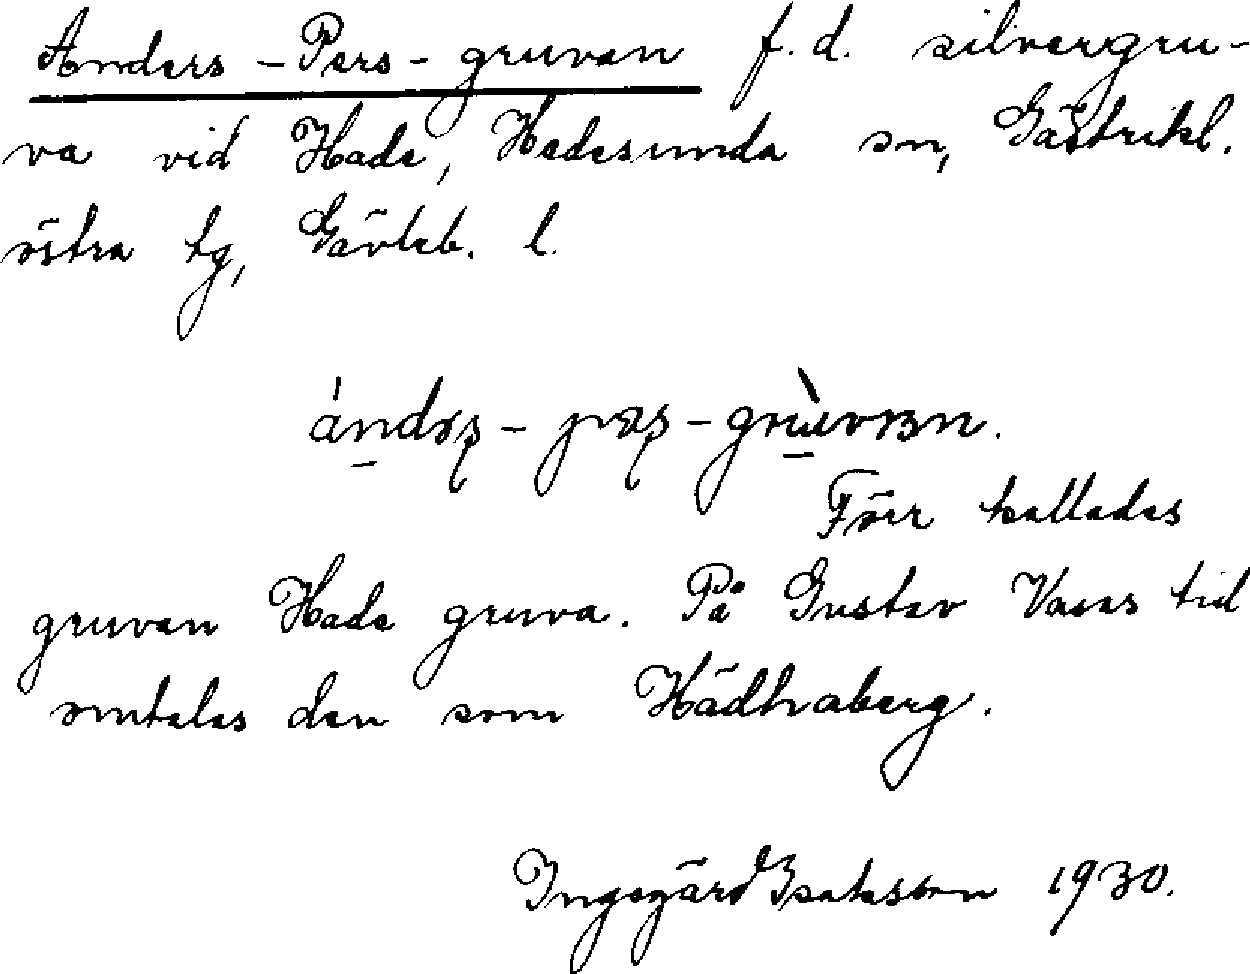 Anders-Pers-gruvan f.d. silvergru-
va vid Hade, Hedesunda sn, Gästrikl.
östra tg, Gävleb. l.
Förr kallades
gruvan Hade gruva. På Gustav Vasas tid
omtalas den som Hädhraberg.
Ingegärd Isaksson 1930.